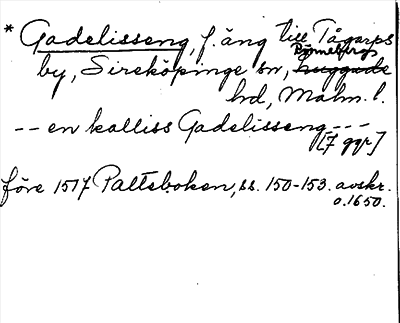 * Gadelisseng, f. äng till Tågarps
by, Sireköpinge sn, Rönnebergs
hd, Malm. l.
-- en kalliss Gadelisseng ---
[7 ggr]
före 1517 Palteboken, ss. 150-153. avskr.
o. 1650.